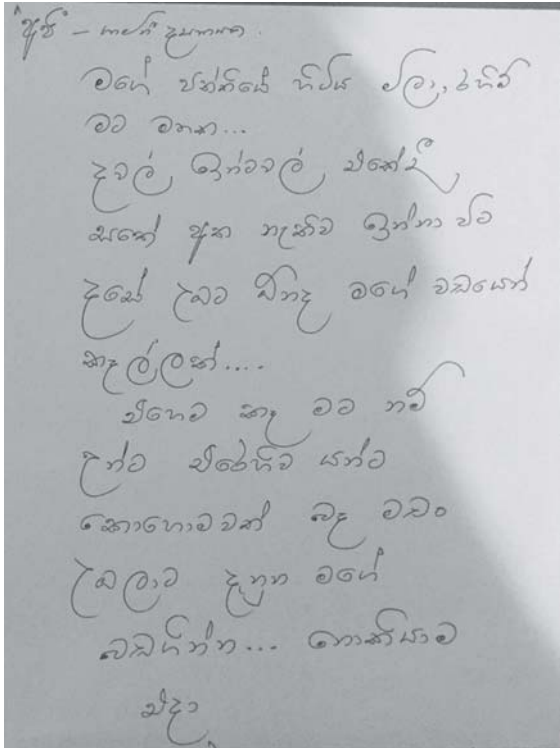 "අපි" – ගාමිණී දසනායක.
මගේ පන්තියේ හිටිය මලා, රහීම්
මට මතක...
දවල් ඉන්ටවල් එකේදී,
සතේ අත නැතිව ඉන්නා විට
දුසේ උඹට ඕනද මගේ වඩයෙන්
කෑල්ලක්....
එහෙම කෑ මට නම්
උන්ට එරෙහිව යන්ට
කොහොමවත් බෑ මචං
උඹලාට දැනුන මගේ
බඩගින්න... නොකියාම
එදා